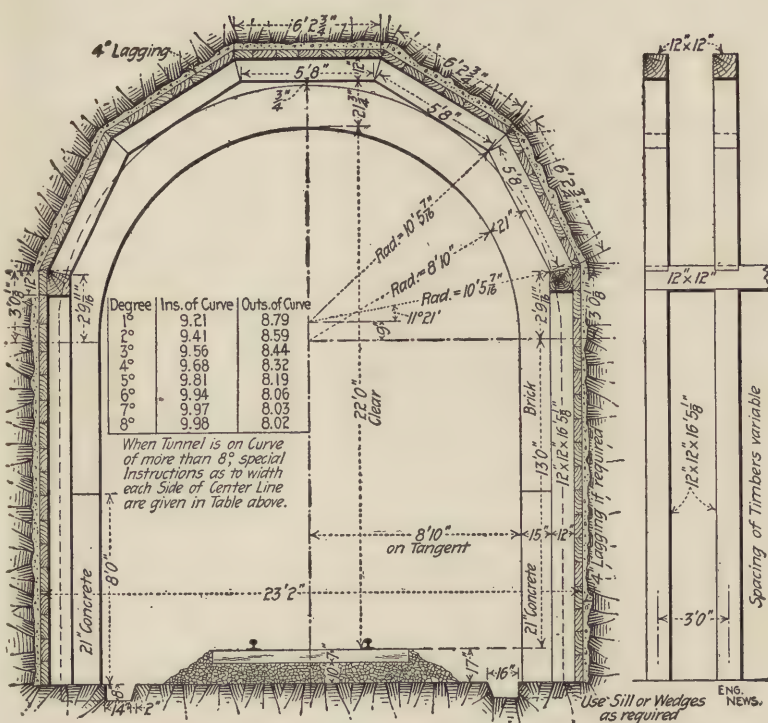 6'2¾"
4" Lagging
5'8"
12"
¾"
21¾"
6'2¾"
5'8"
5'8"
6'2¾"
21"
Rad.=10'5 7/16"
Rad.=8'10"
Rad.=10'5 7/16"
11°21'
9"
3'0⅛"
12"
2'9 11/16"
2'9 11/16"
3'0⅛"
Degree Ins. of Curve Outs. of Curve
1° 9.21 8.79
2° 9.41 8.59
3° 9.56 8.44
4° 9.68 8.32
5° 9.81 8.19
6° 9.94 8.06
7° 9.97 8.03
8° 9.98 8.02
When Tunnel is on Curve
of more than 8°, special
Instructions as to width
each Side of Center Line
are given in Table above.
22'0"
Clear
Brick
13'0"
12"x12"x16'5⅛"
4" Lagging if required
8'10"
on Tangent
15"
12"
8'0"
21" Concrete
23'2"
21" Concrete
17"
16"
8"
14"
2"
12"x12"
12"x12"
12"x12"x16'5⅛"
Spacing of Timbers variable
3'0"
Use Sill or Wedges
as required
ENG.
NEWS.